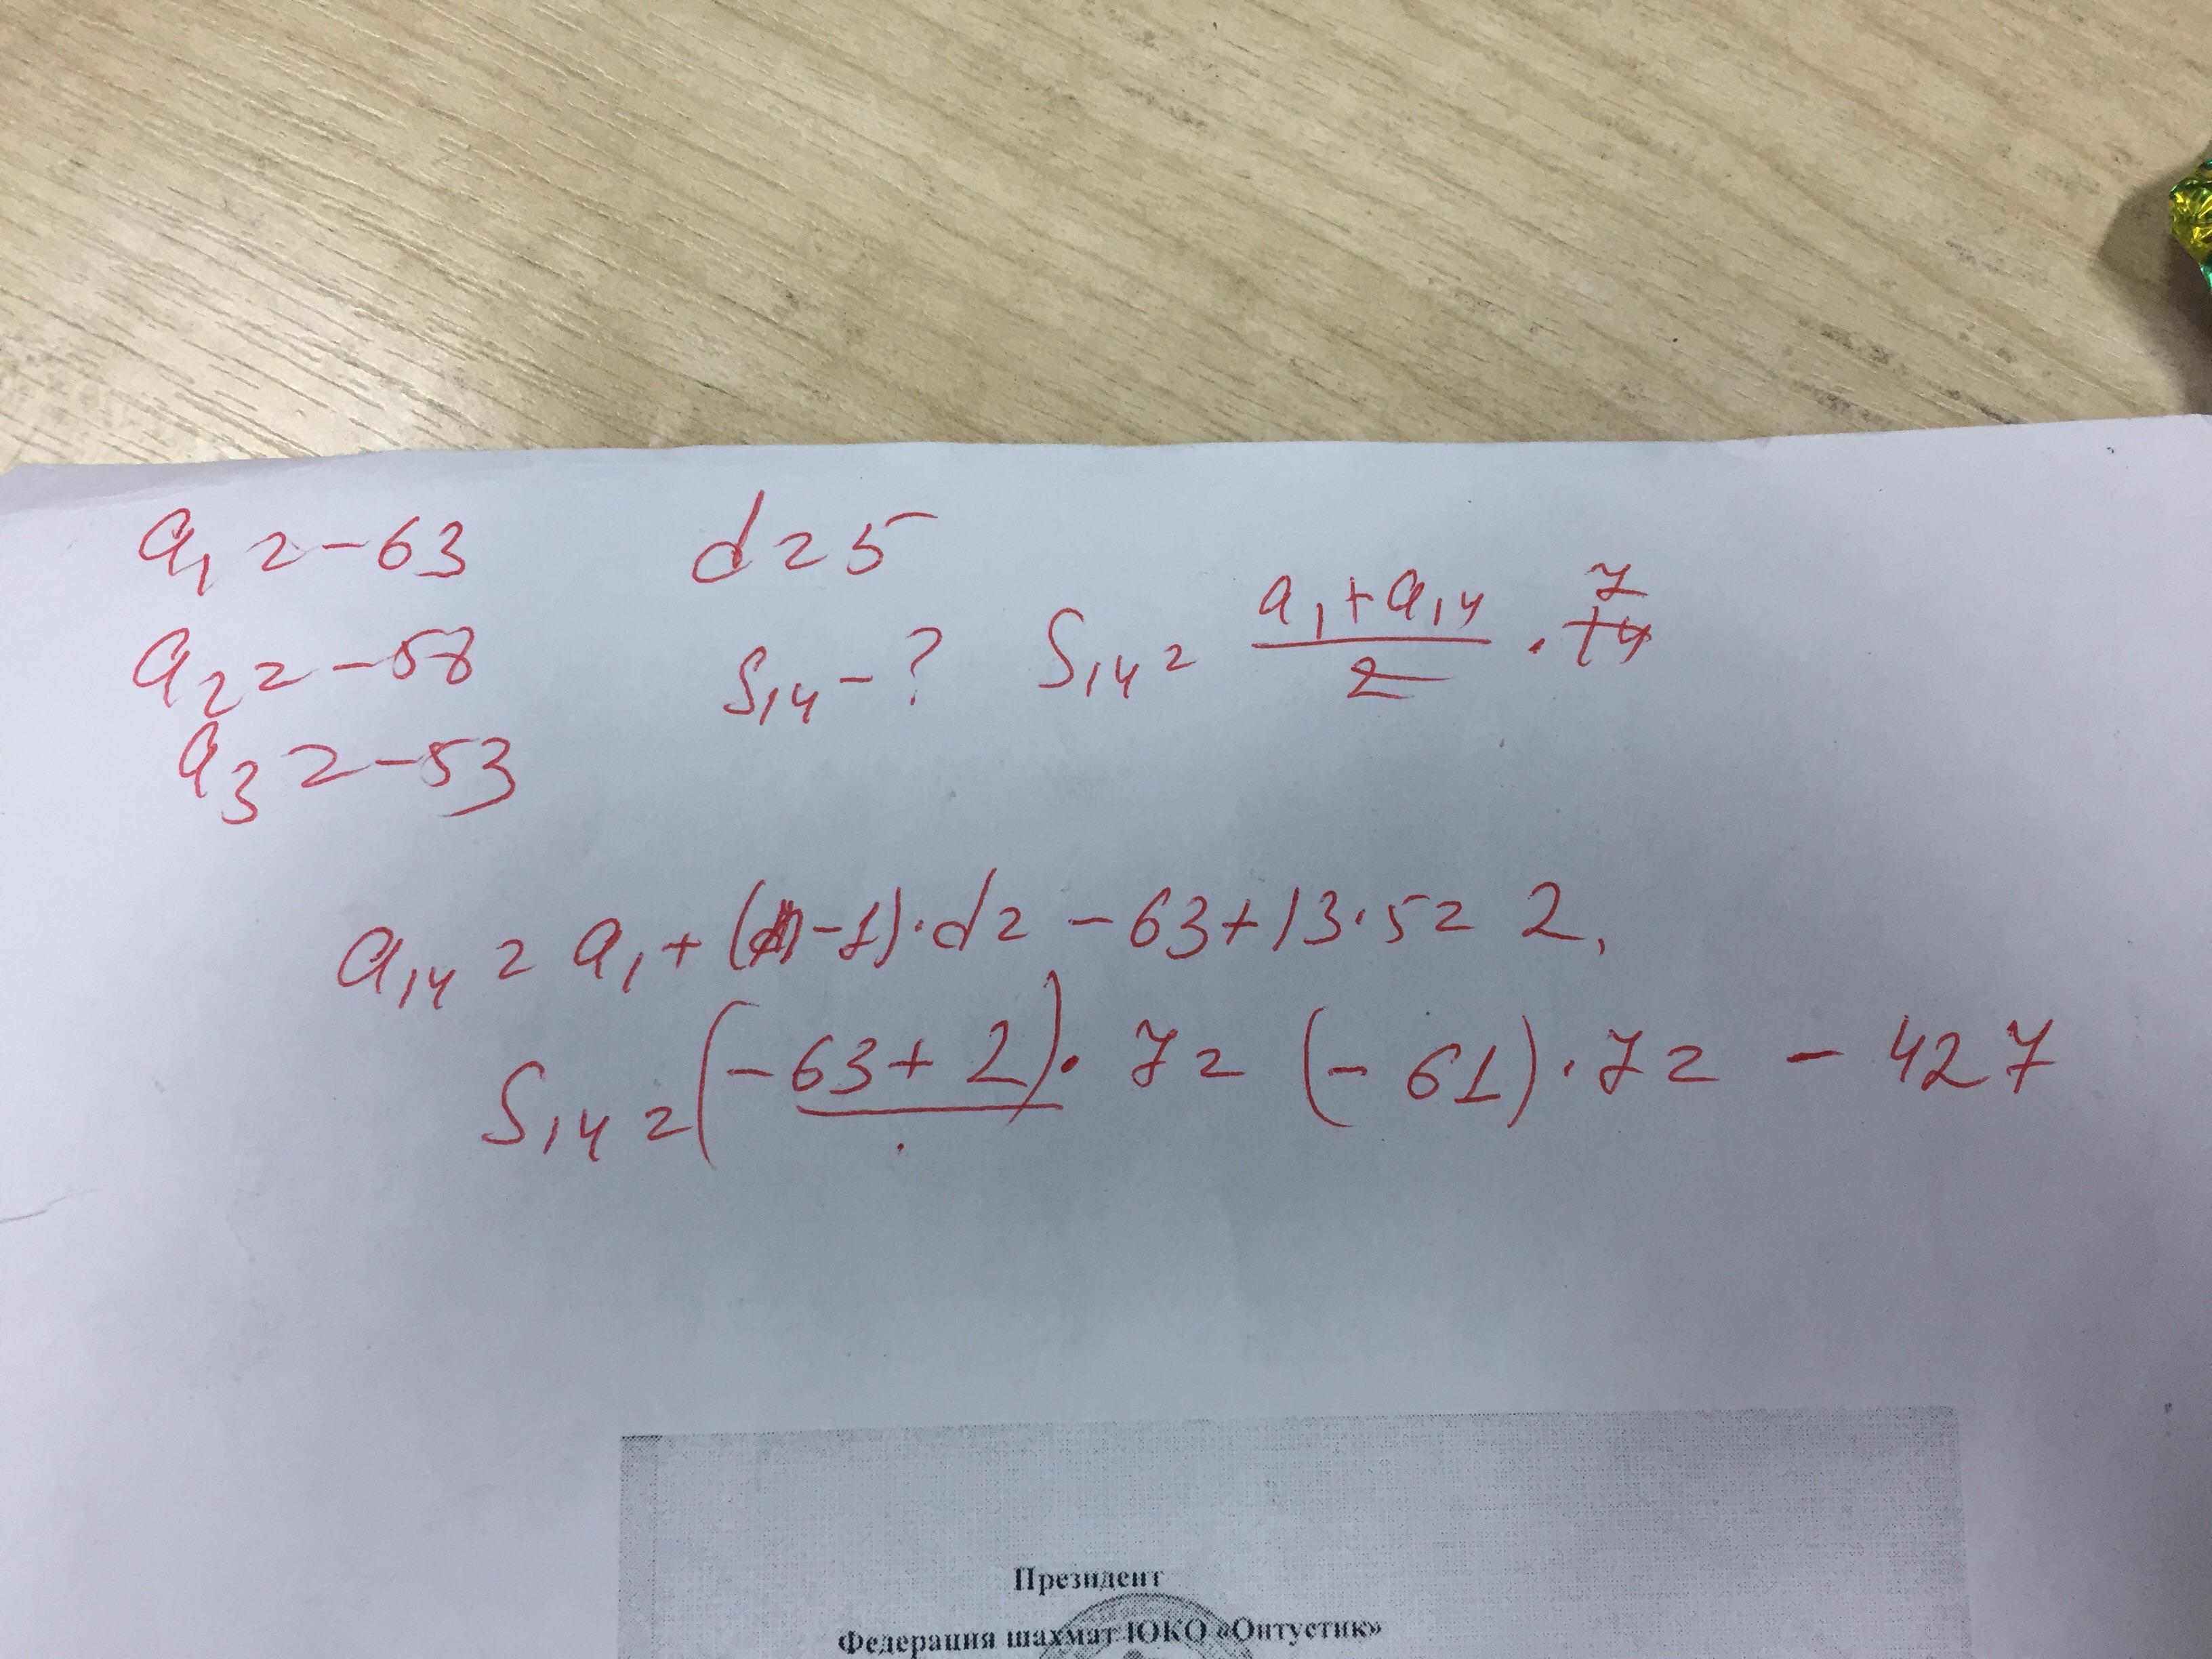 a₁ = -63 d = 5
a₂ = -58 S₁₄ - ? S₁₄ = (a₁ + a₁₄)/2 · 14 7
a₃ = -53
a₁₄ = a₁ + (n-1)·d = -63 + 13·5 = 2.
S₁₄ = (-63 + 2) · 7 = (-61) · 7 = -427
Президент
Федерация шахмат ЮКО «Онтустик»